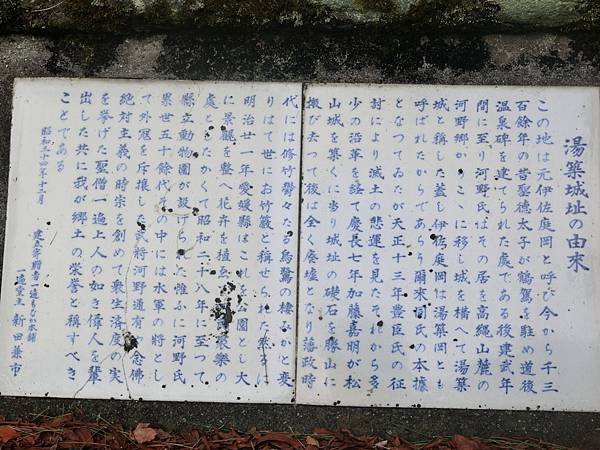 湯築城址の由來
この地は元伊佐庭岡と呼び今から千三
百餘年の昔聖德太子が鶴駕を駐め道後
温泉碑を建てられた處である後建武年
間に至り河野氏はその居を高縄山麓の
河野郷からこゝに移し城を構へて湯築
城と稱した蓋し伊佐庭岡は湯築岡とも
呼ばれたからであらう爾来同氏の本據
となつてゐたが天正十三年豊臣氏の征
討により滅土の悲運を見たそれから多
少の沿革を経て慶長七年加藤嘉明が松
山城を築くに当り城址の礎石を勝山に
搬び去つて後は全く廃墟となり藩政時
代には修竹鬱々たる烏鷺の棲みかと変
りはて世にお竹薮と稱せられた
明治廿一年愛媛縣はこれを公園とし大
に景観を整へ花卉を植ゑ 衆楽の
處としたかくて昭和二十八年に至つて
縣立動物園が設 惟ふに河野氏
累世五十餘代その中には水軍の将とし
て外冦を斥攘した武将河野通有 念佛
絶対主義の時宗を創めて衆生済度の実
を挙げた聖僧一遍上人の如き偉人を輩
出した共に我が郷土の栄誉と稱すべき
ことである
昭和三十四年十二月
建立寄附者一遍もなか本舗
一遍堂主 新田兼市